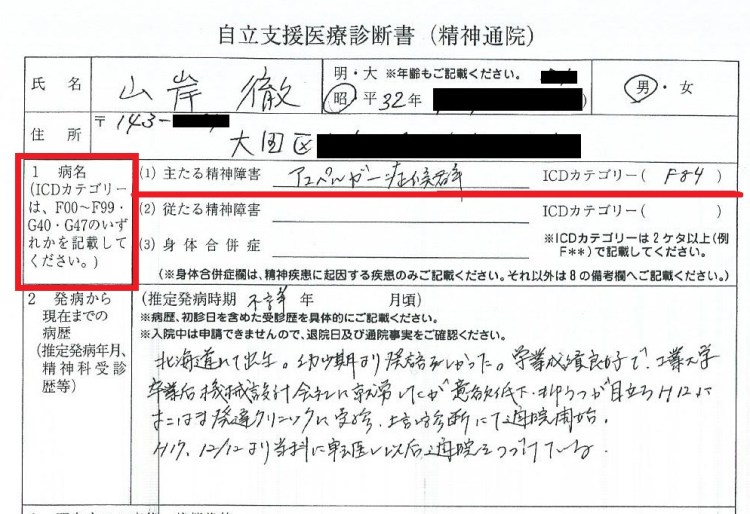 自立支援医療診断書（精神通院）
氏名 山岸 徹 明・大 ※年齢もご記載ください。
昭・平 32年 男・女
住所 〒143-
大田区
1 病名 (1) 主たる精神障害 アスペルガー症候群 ICDカテゴリー( F84 )
(ICDカテゴリーは、F00～F99・G40・G47のいずれかを記載してください。)
(2) 従たる精神障害 ICDカテゴリー( )
(3) 身体合併症 ※ICDカテゴリーは2ケタ以上(例F**)で記載してください。
(※身体合併症欄は、精神疾患に起因する疾患のみご記載ください。それ以外は8の備考欄へご記載ください。)
2 発病から現在までの病歴 (推定発病時期 不詳 年 月頃)
(推定発病年月、精神科受診歴等)
※病歴、初診日を含めた受診歴を具体的にご記載ください。
※入院中は申請できませんので、退院日及び通院事実をご確認ください。
北海道にて出生。幼少期より 学業成績良好で、工業大学
卒業后機械設計会社に就労してたが意欲低下・抑うつが目立ちH12に
よこはま発達クリニックに受診、上記診断にて通院開始。
H17. 12/12より当科に転医し以后通院をつづけている。